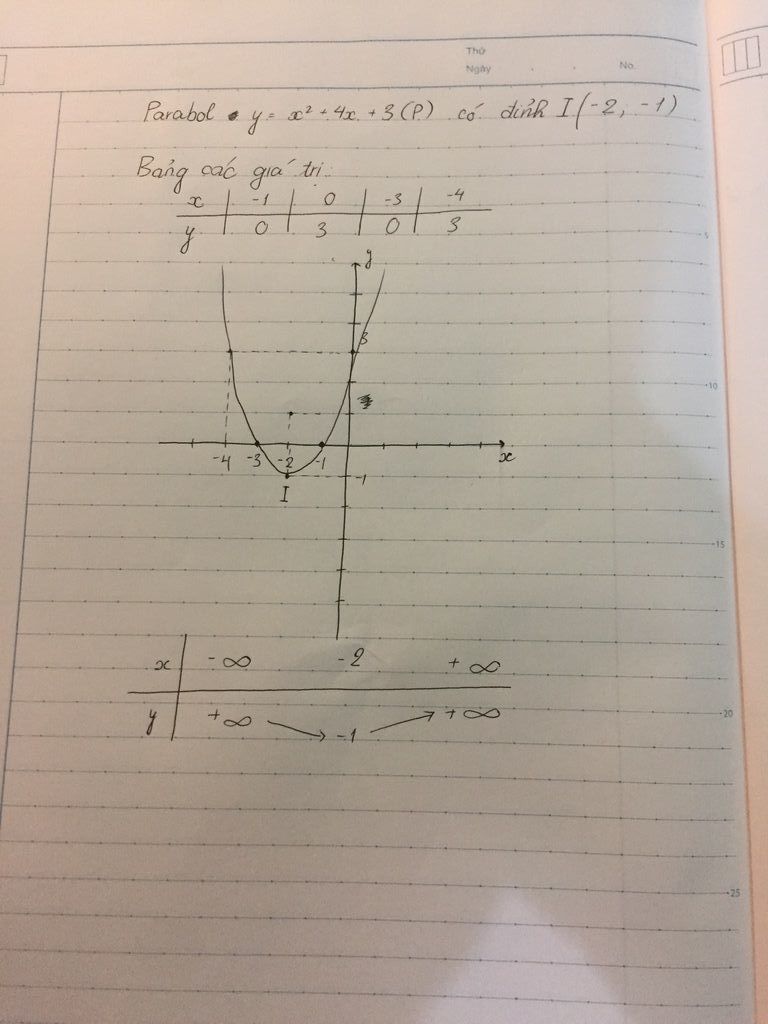 Thứ
Ngày . . No.
Parabol y = x² + 4x + 3 (P) có đỉnh I(-2; -1)
Bảng các giá trị:
x -1 0 -3 -4
y 0 3 0 3
y
3
-4 -3 -2 -1 x
-1
I
x -∞ -2 +∞
y +∞ -1 +∞
5
10
15
20
25